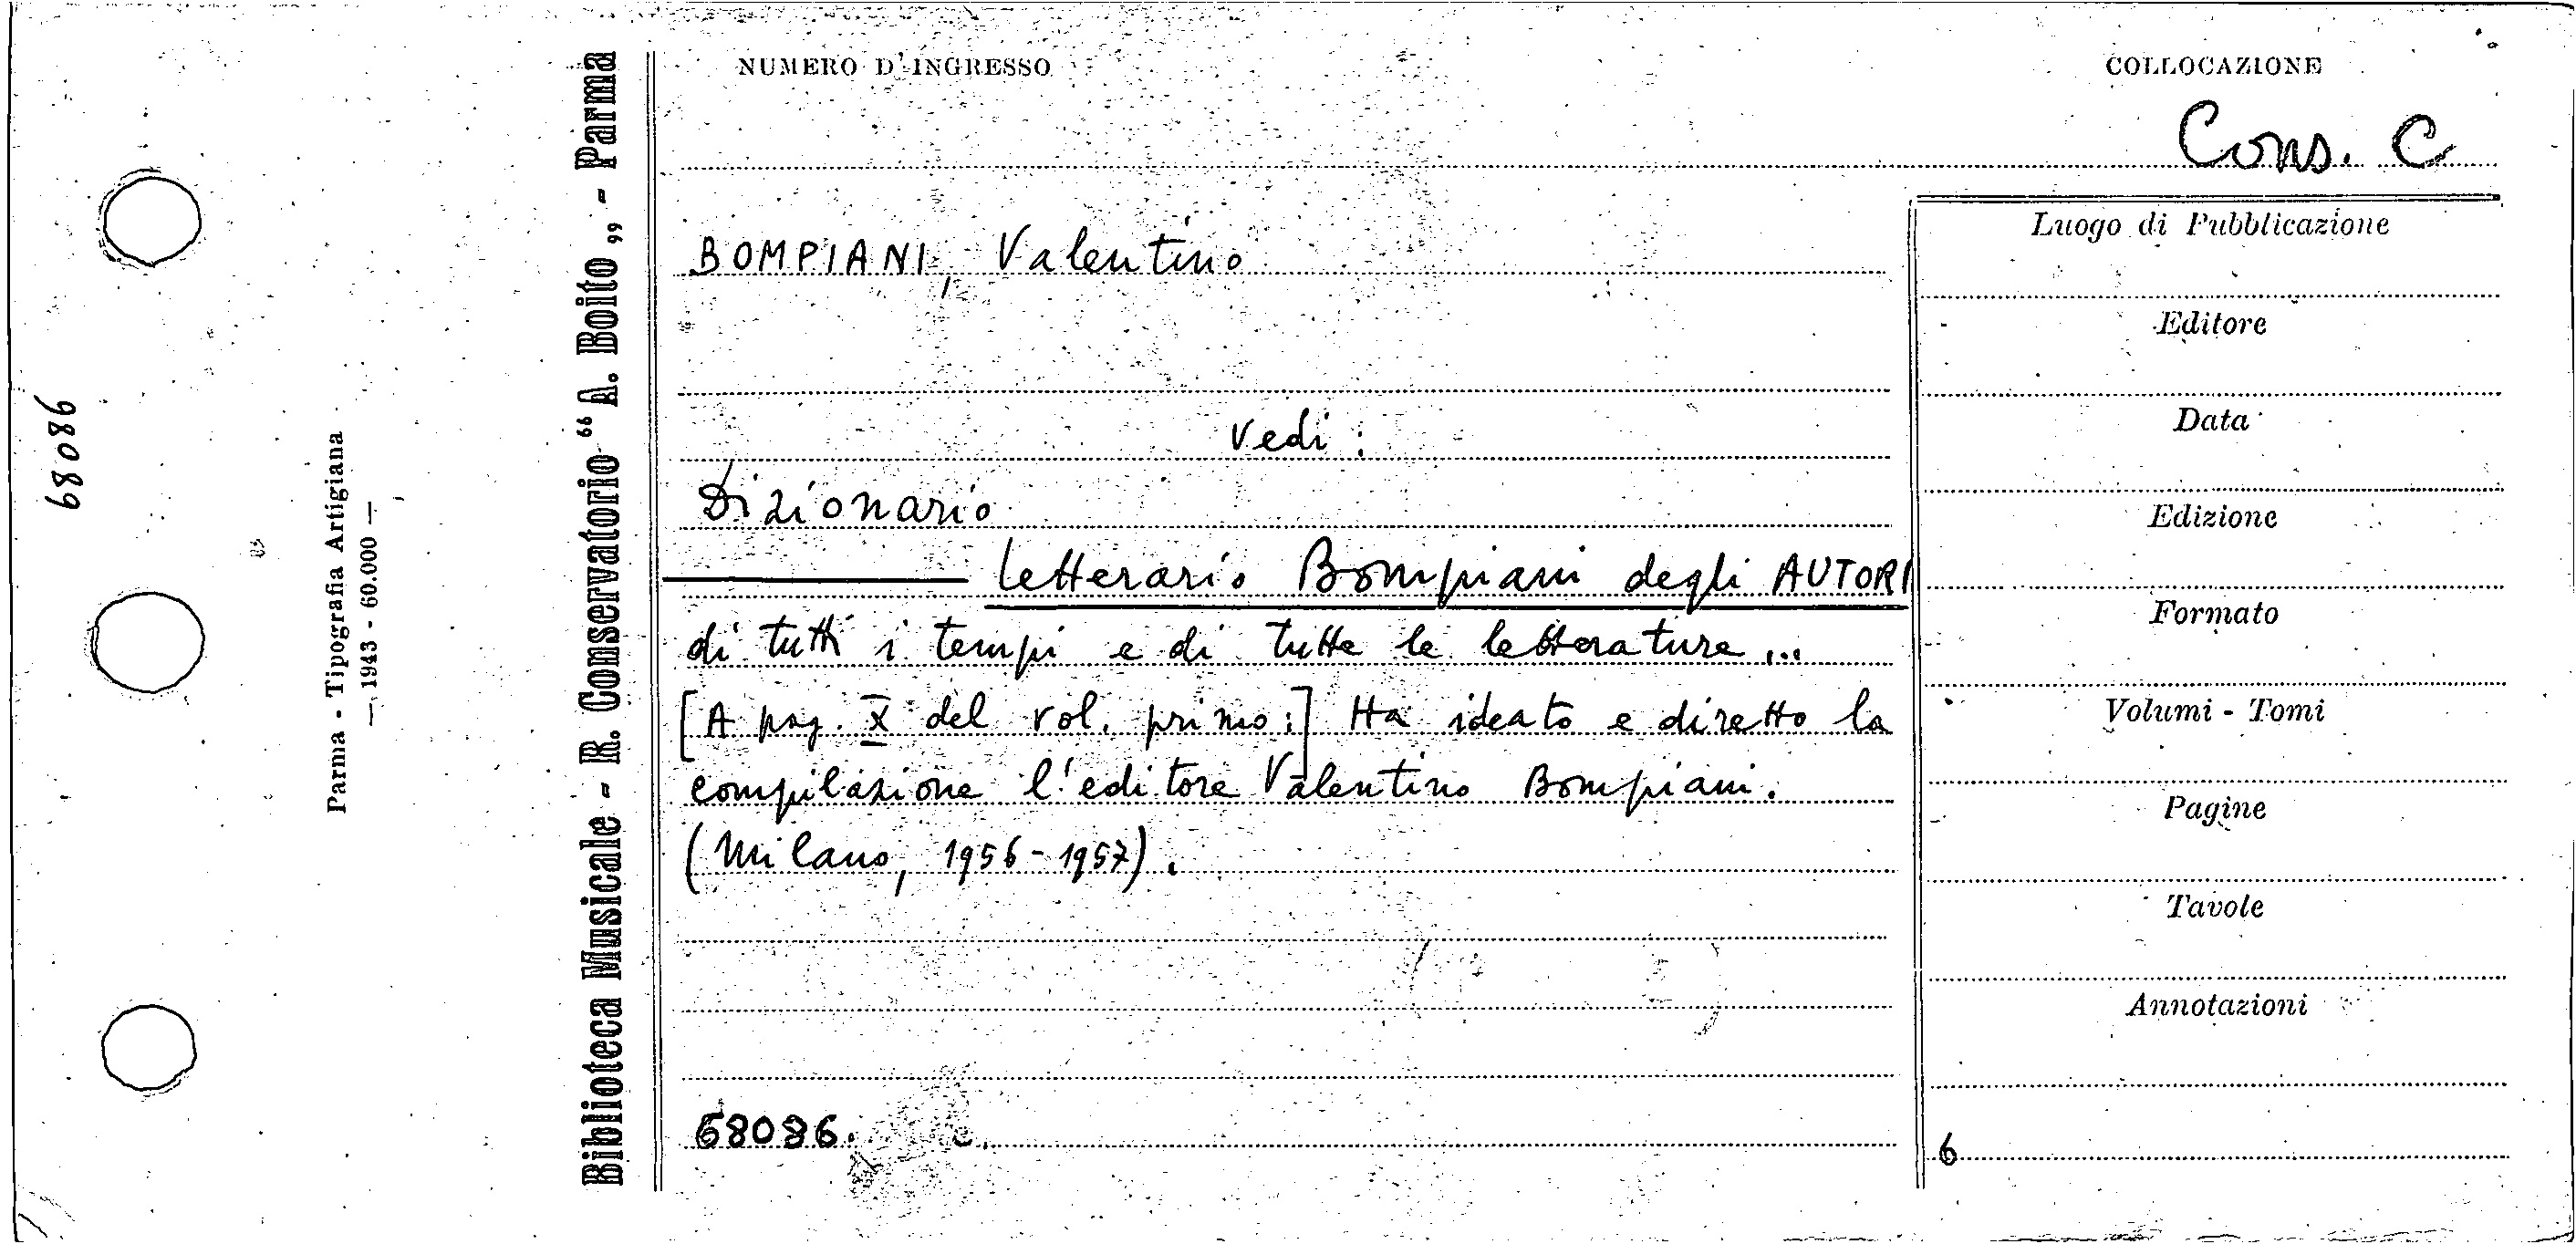 NUMERO D'INGRESSO
COLLOCAZIONE
Cons. C
BOMPIANI, Valentino
vedi:
Dizionario
letterario Bompiani degli AUTORI
di tutti i tempi e di tutte le letterature...
[A pag. X del vol. primo:] Ha ideato e diretto la
compilazione l'editore Valentino Bompiani.
(Milano, 1956-1957).
68086.
c.
Luogo di Pubblicazione
Editore
Data
Edizione
Formato
Volumi - Tomi
Pagine
Tavole
Annotazioni
6
Biblioteca Musicale - R. Conservatorio "A. Boito„ - Parma
Parma - Tipografia Artigiana
— 1943 - 60.000 —
68086